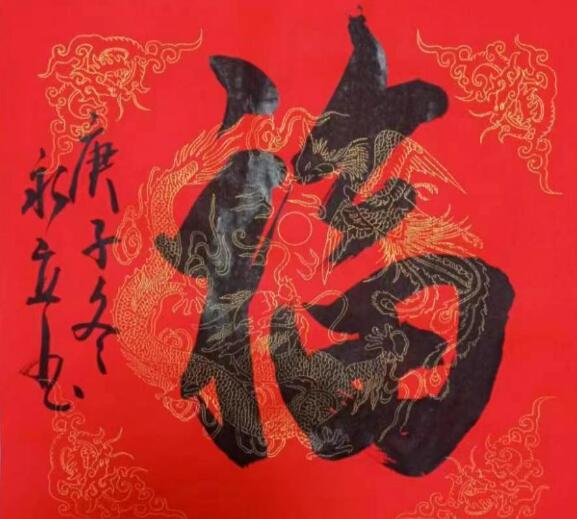 福
庚子冬
永立书